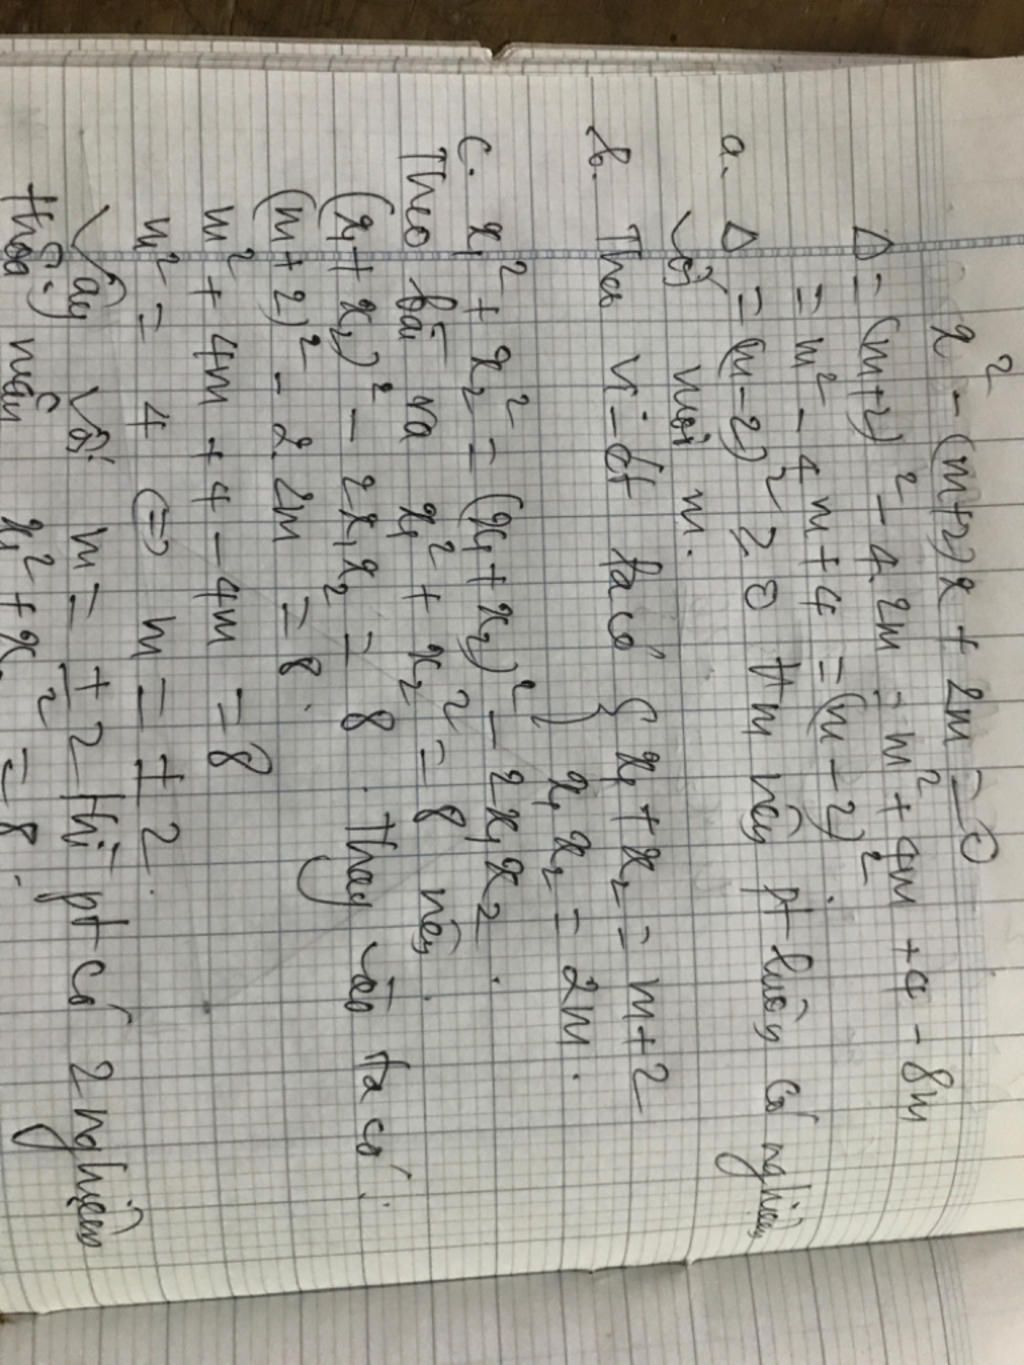 x² - (m+2)x + 2m = 0
Δ = (m+2)² - 4.2m = m² + 4m + 4 - 8m
= m² - 4m + 4 = (m - 2)².
a. Δ = (m-2)² ≥ 0 ∀m nên pt luôn có nghiệm
với mọi m.
b. Theo vi-ét ta có { x₁ + x₂ = m+2
x₁x₂ = 2m.
c. x₁² + x₂² = (x₁ + x₂)² - 2x₁x₂.
Theo bài ra x₁² + x₂² = 8 nên.
(x₁ + x₂)² - 2x₁x₂ = 8. Thay vào ta có:
(m+2)² - 2.2m = 8.
m² + 4m + 4 - 4m = 8
m² = 4 ⇔ m = ± 2.
Vậy với m = ± 2 thì pt có 2 nghiệm
thoả mãn x₁² + x₂² = 8.